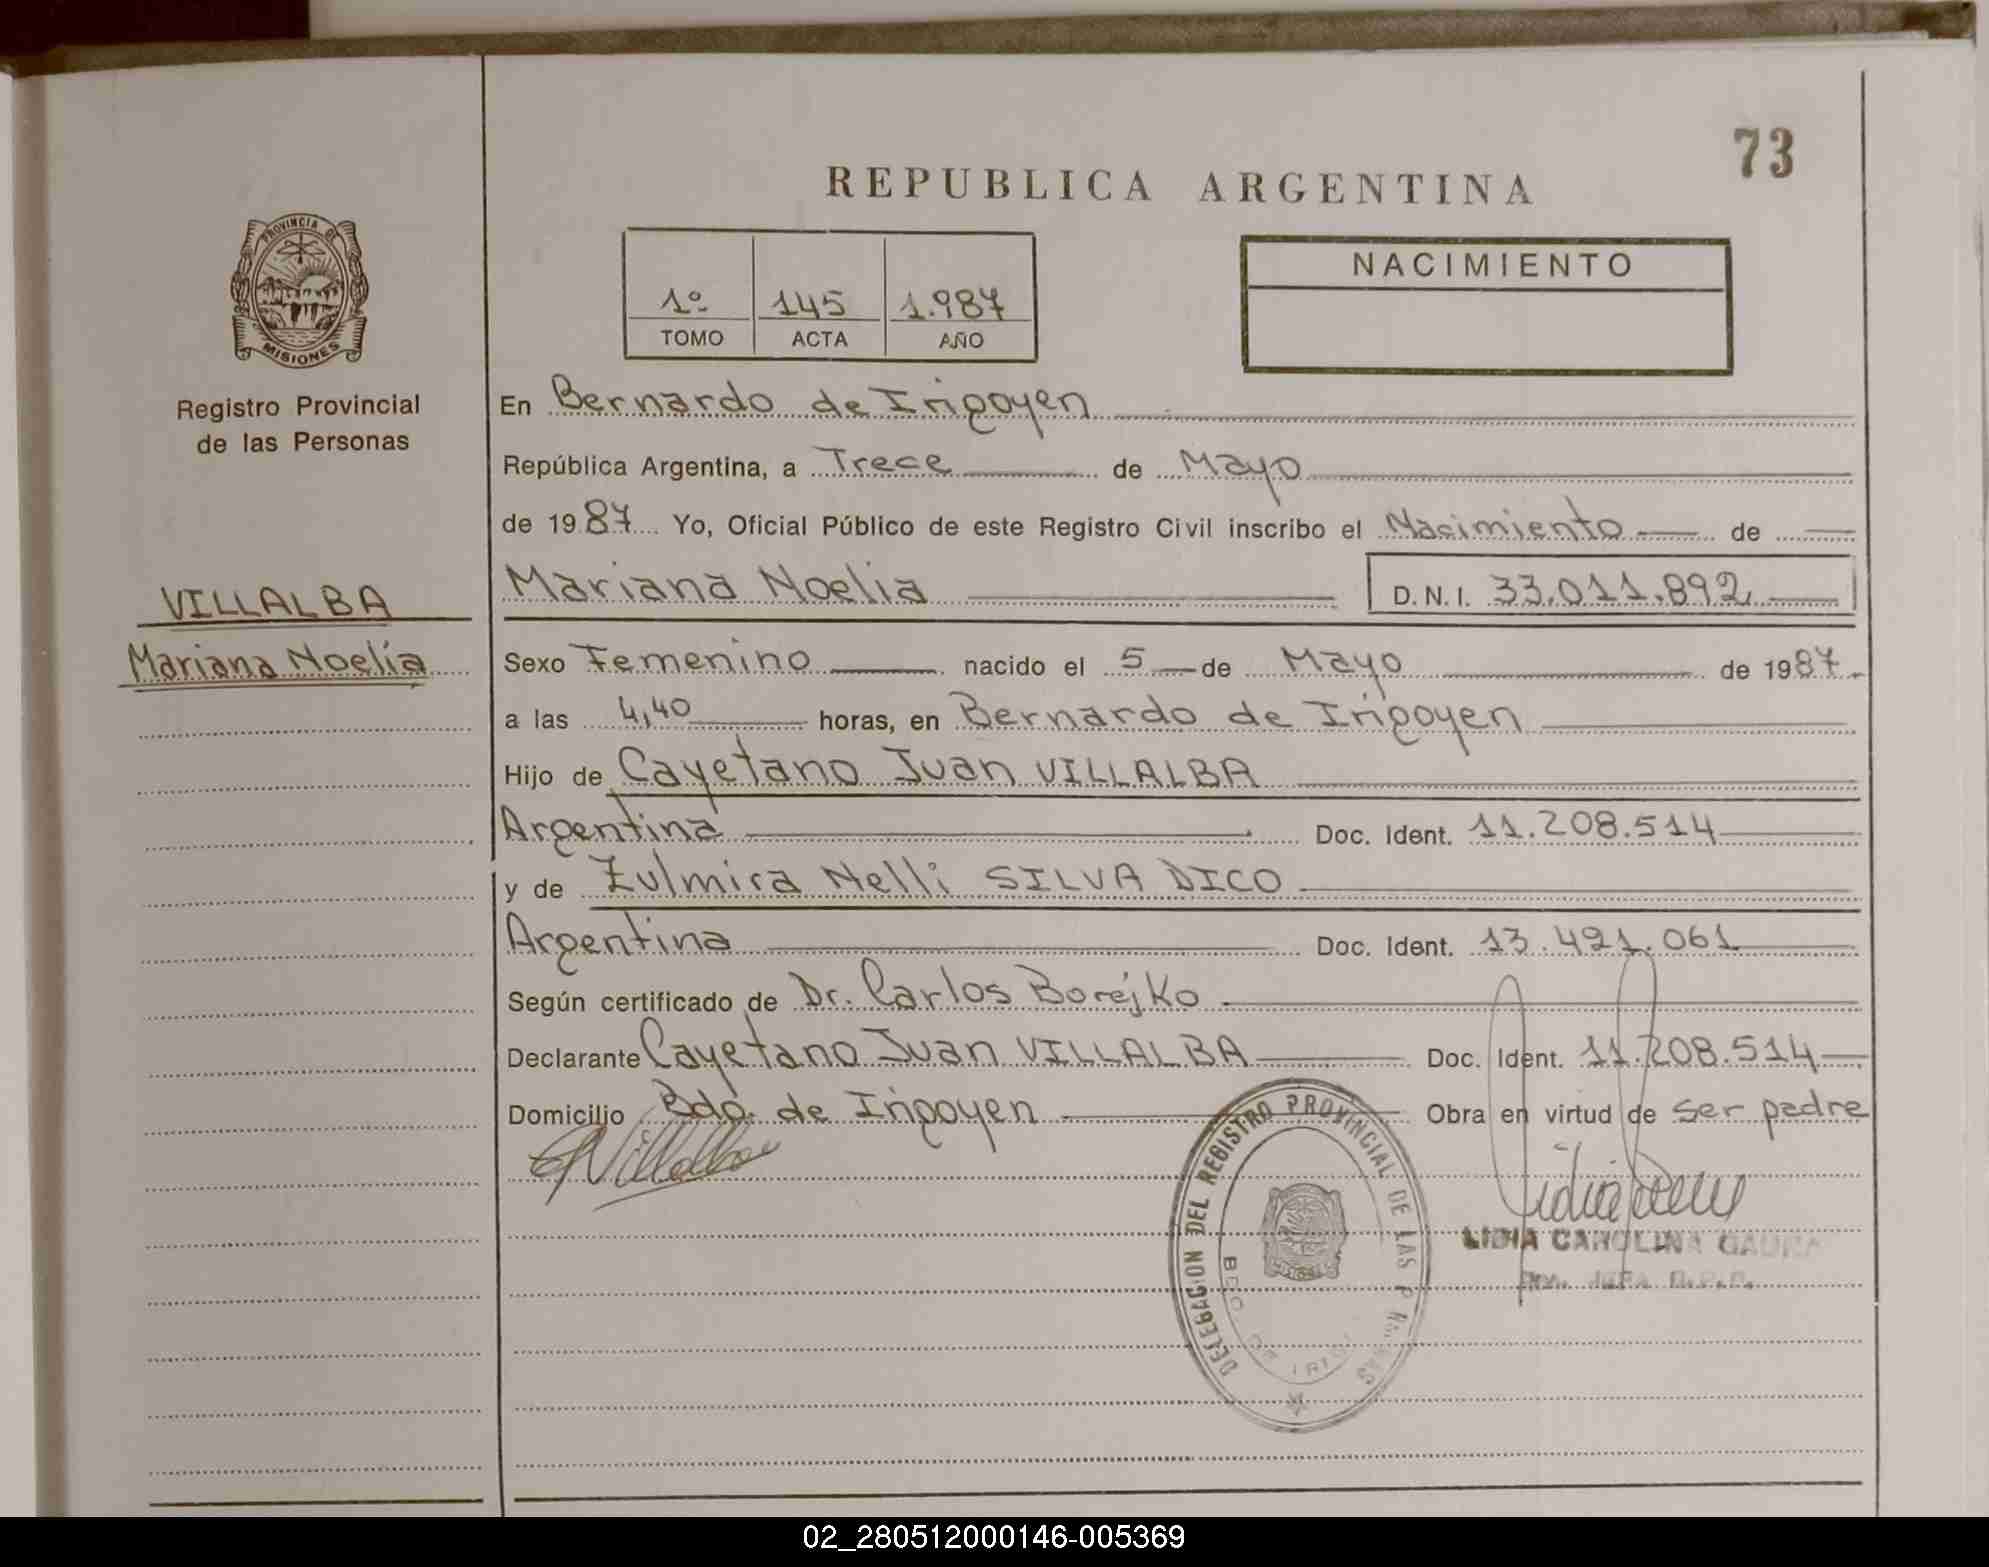 73
REPUBLICA ARGENTINA
PROVINCIA DE
MISIONES
Registro Provincial
de las Personas
1º 145 1.987
TOMO ACTA AÑO
NACIMIENTO
En Bernardo de Irigoyen
República Argentina, a Trece de Mayo
de 1987 Yo, Oficial Público de este Registro Civil inscribo el Nacimiento de
Mariana Noelia D.N.I. 33.011.892
VILLALBA
Mariana Noelia
Sexo Femenino nacido el 5 de Mayo de 1987
a las 4,40 horas, en Bernardo de Irigoyen
Hijo de Cayetano Juan VILLALBA
Argentina Doc. Ident. 11.208.514
y de Zulmira Nelli SILVA DICO
Argentina Doc. Ident. 13.421.061
Según certificado de Dr. Carlos Borejko
Declarante Cayetano Juan VILLALBA Doc. Ident. 11.208.514
Domicilio Bdo. de Irigoyen Obra en virtud de ser padre
Villalba
DELEGACION DEL REGISTRO PROVINCIAL DE LAS
BDO DE IRIGO
LIDIA CAROLINA
JEFA R.P.P.
02_280512000146-005369